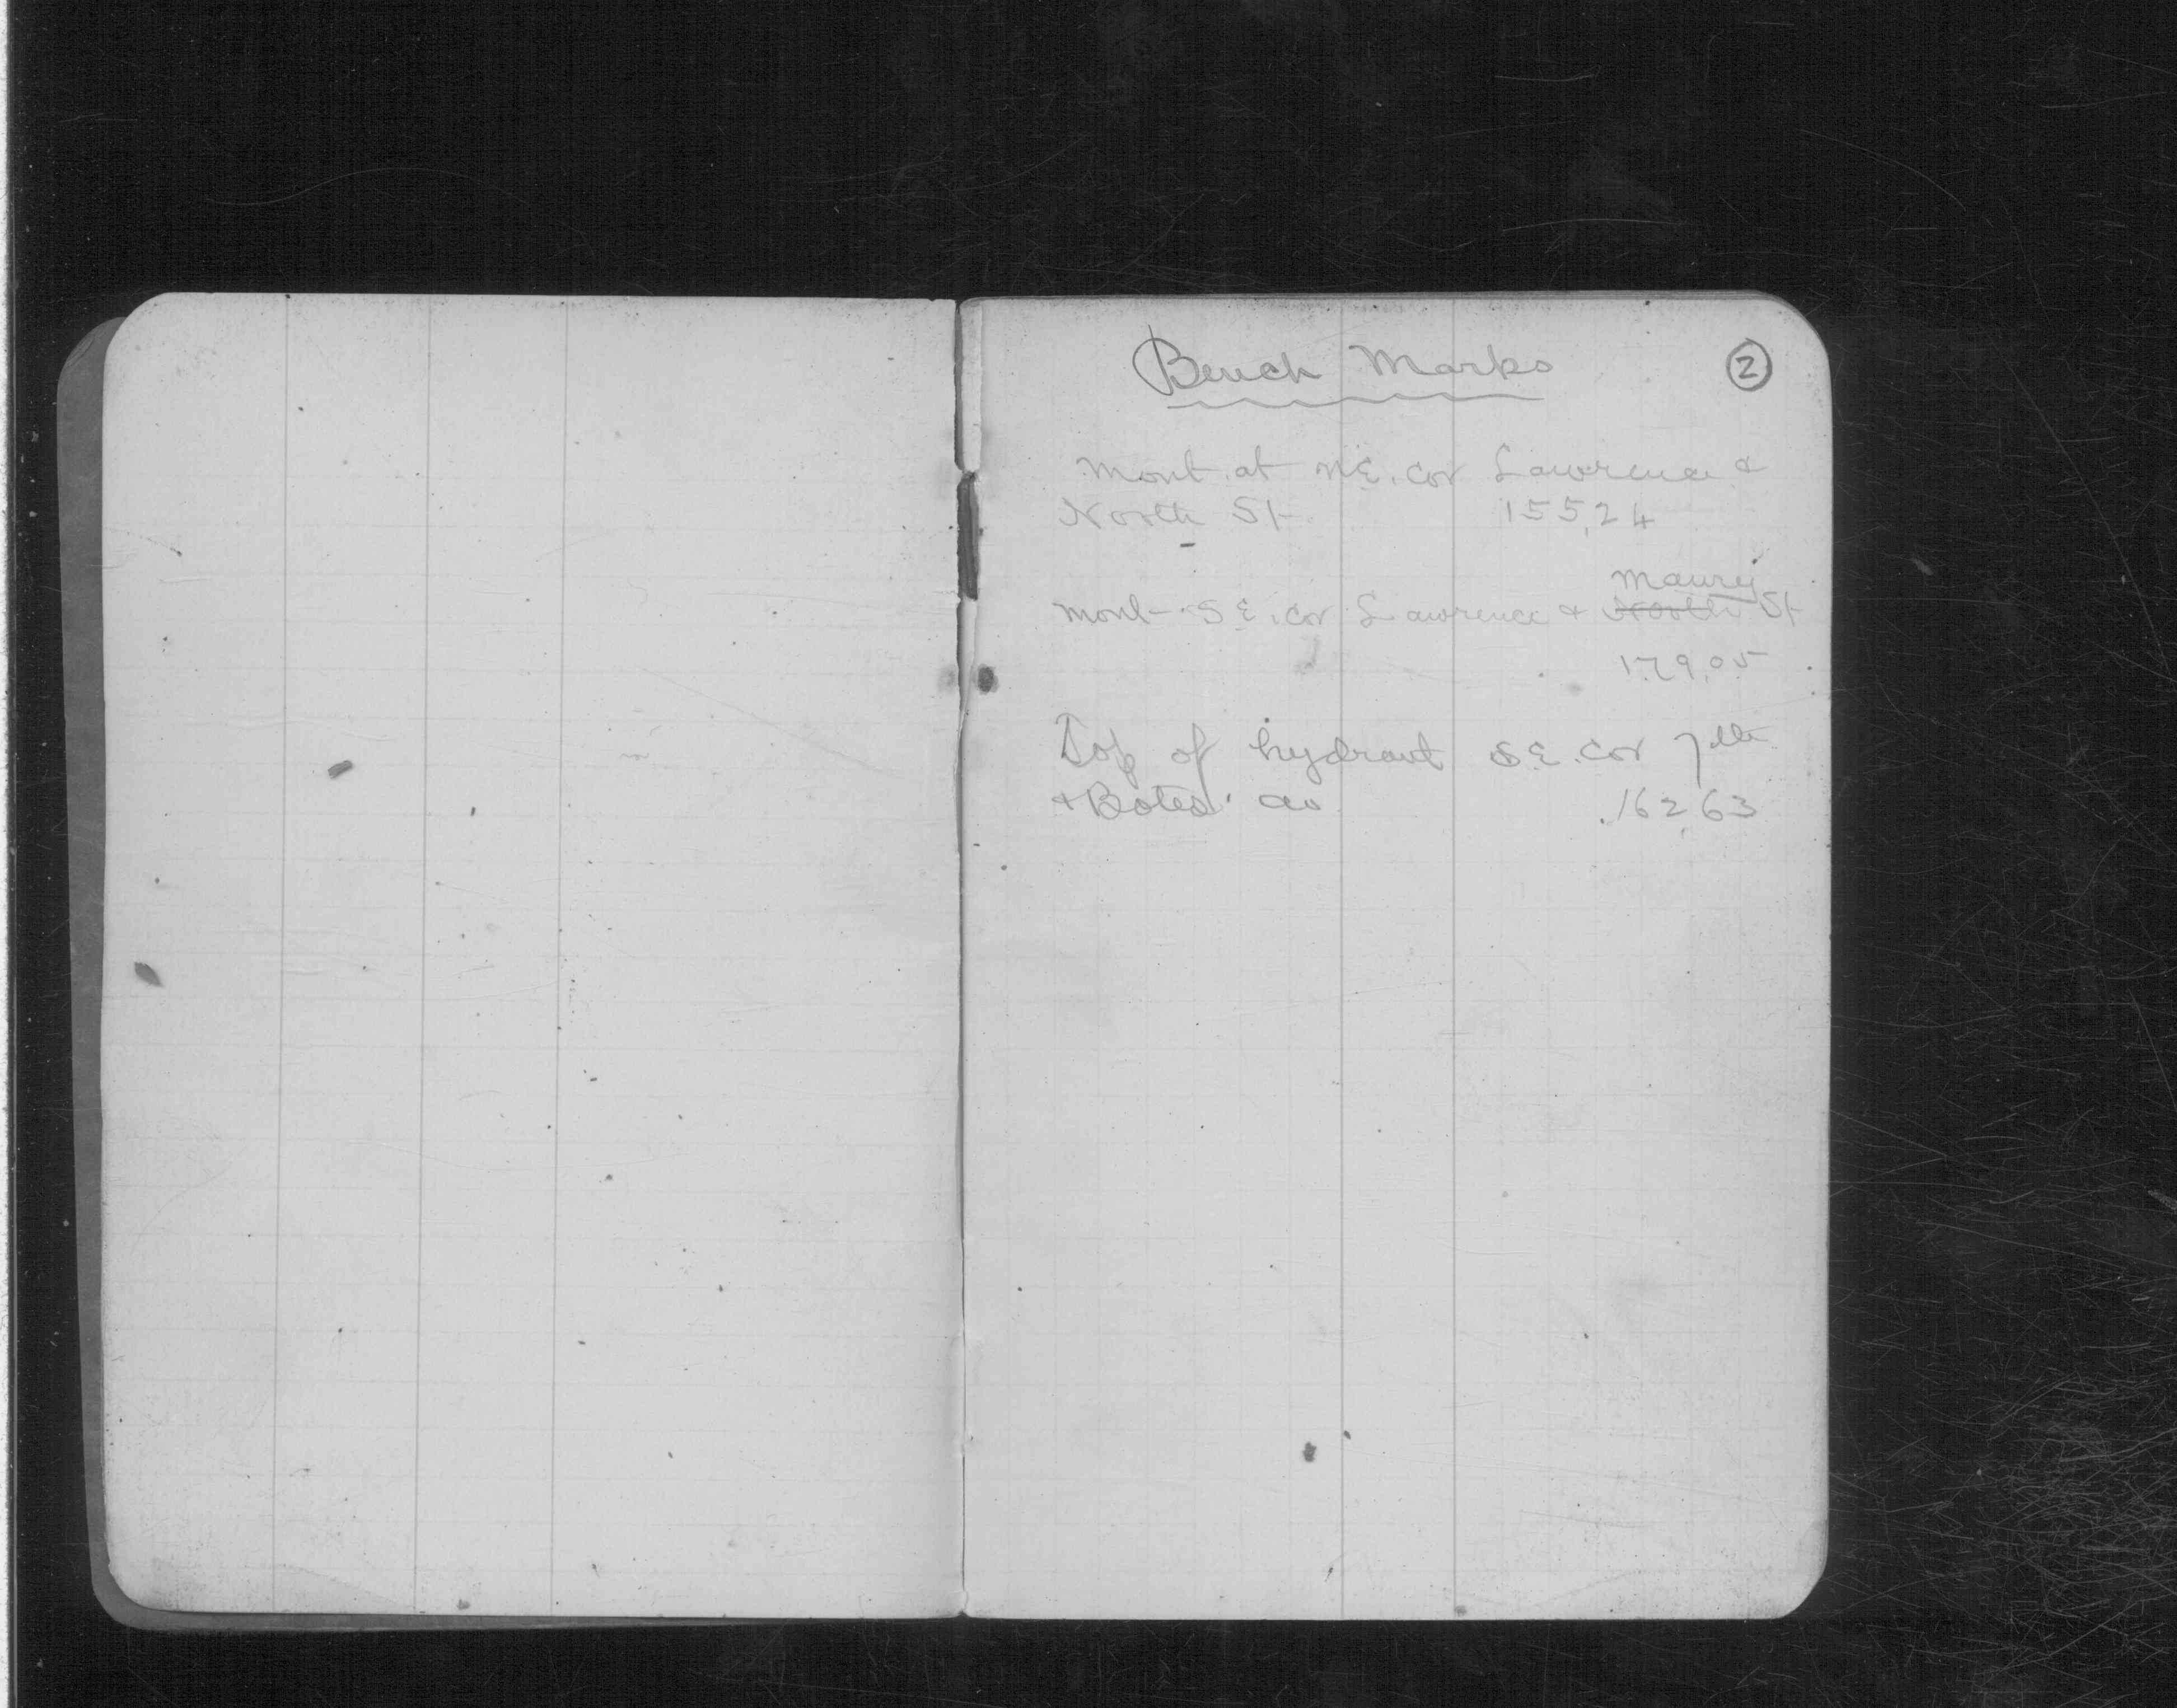 Bench Marks
2
Mont. at N.E. cor Lawrence &
North St. 155.24
Maury
Mont - S.E. cor Lawrence & North St
179.05
Top of hydrant S.E. cor 7th
& Bates' av 162.63